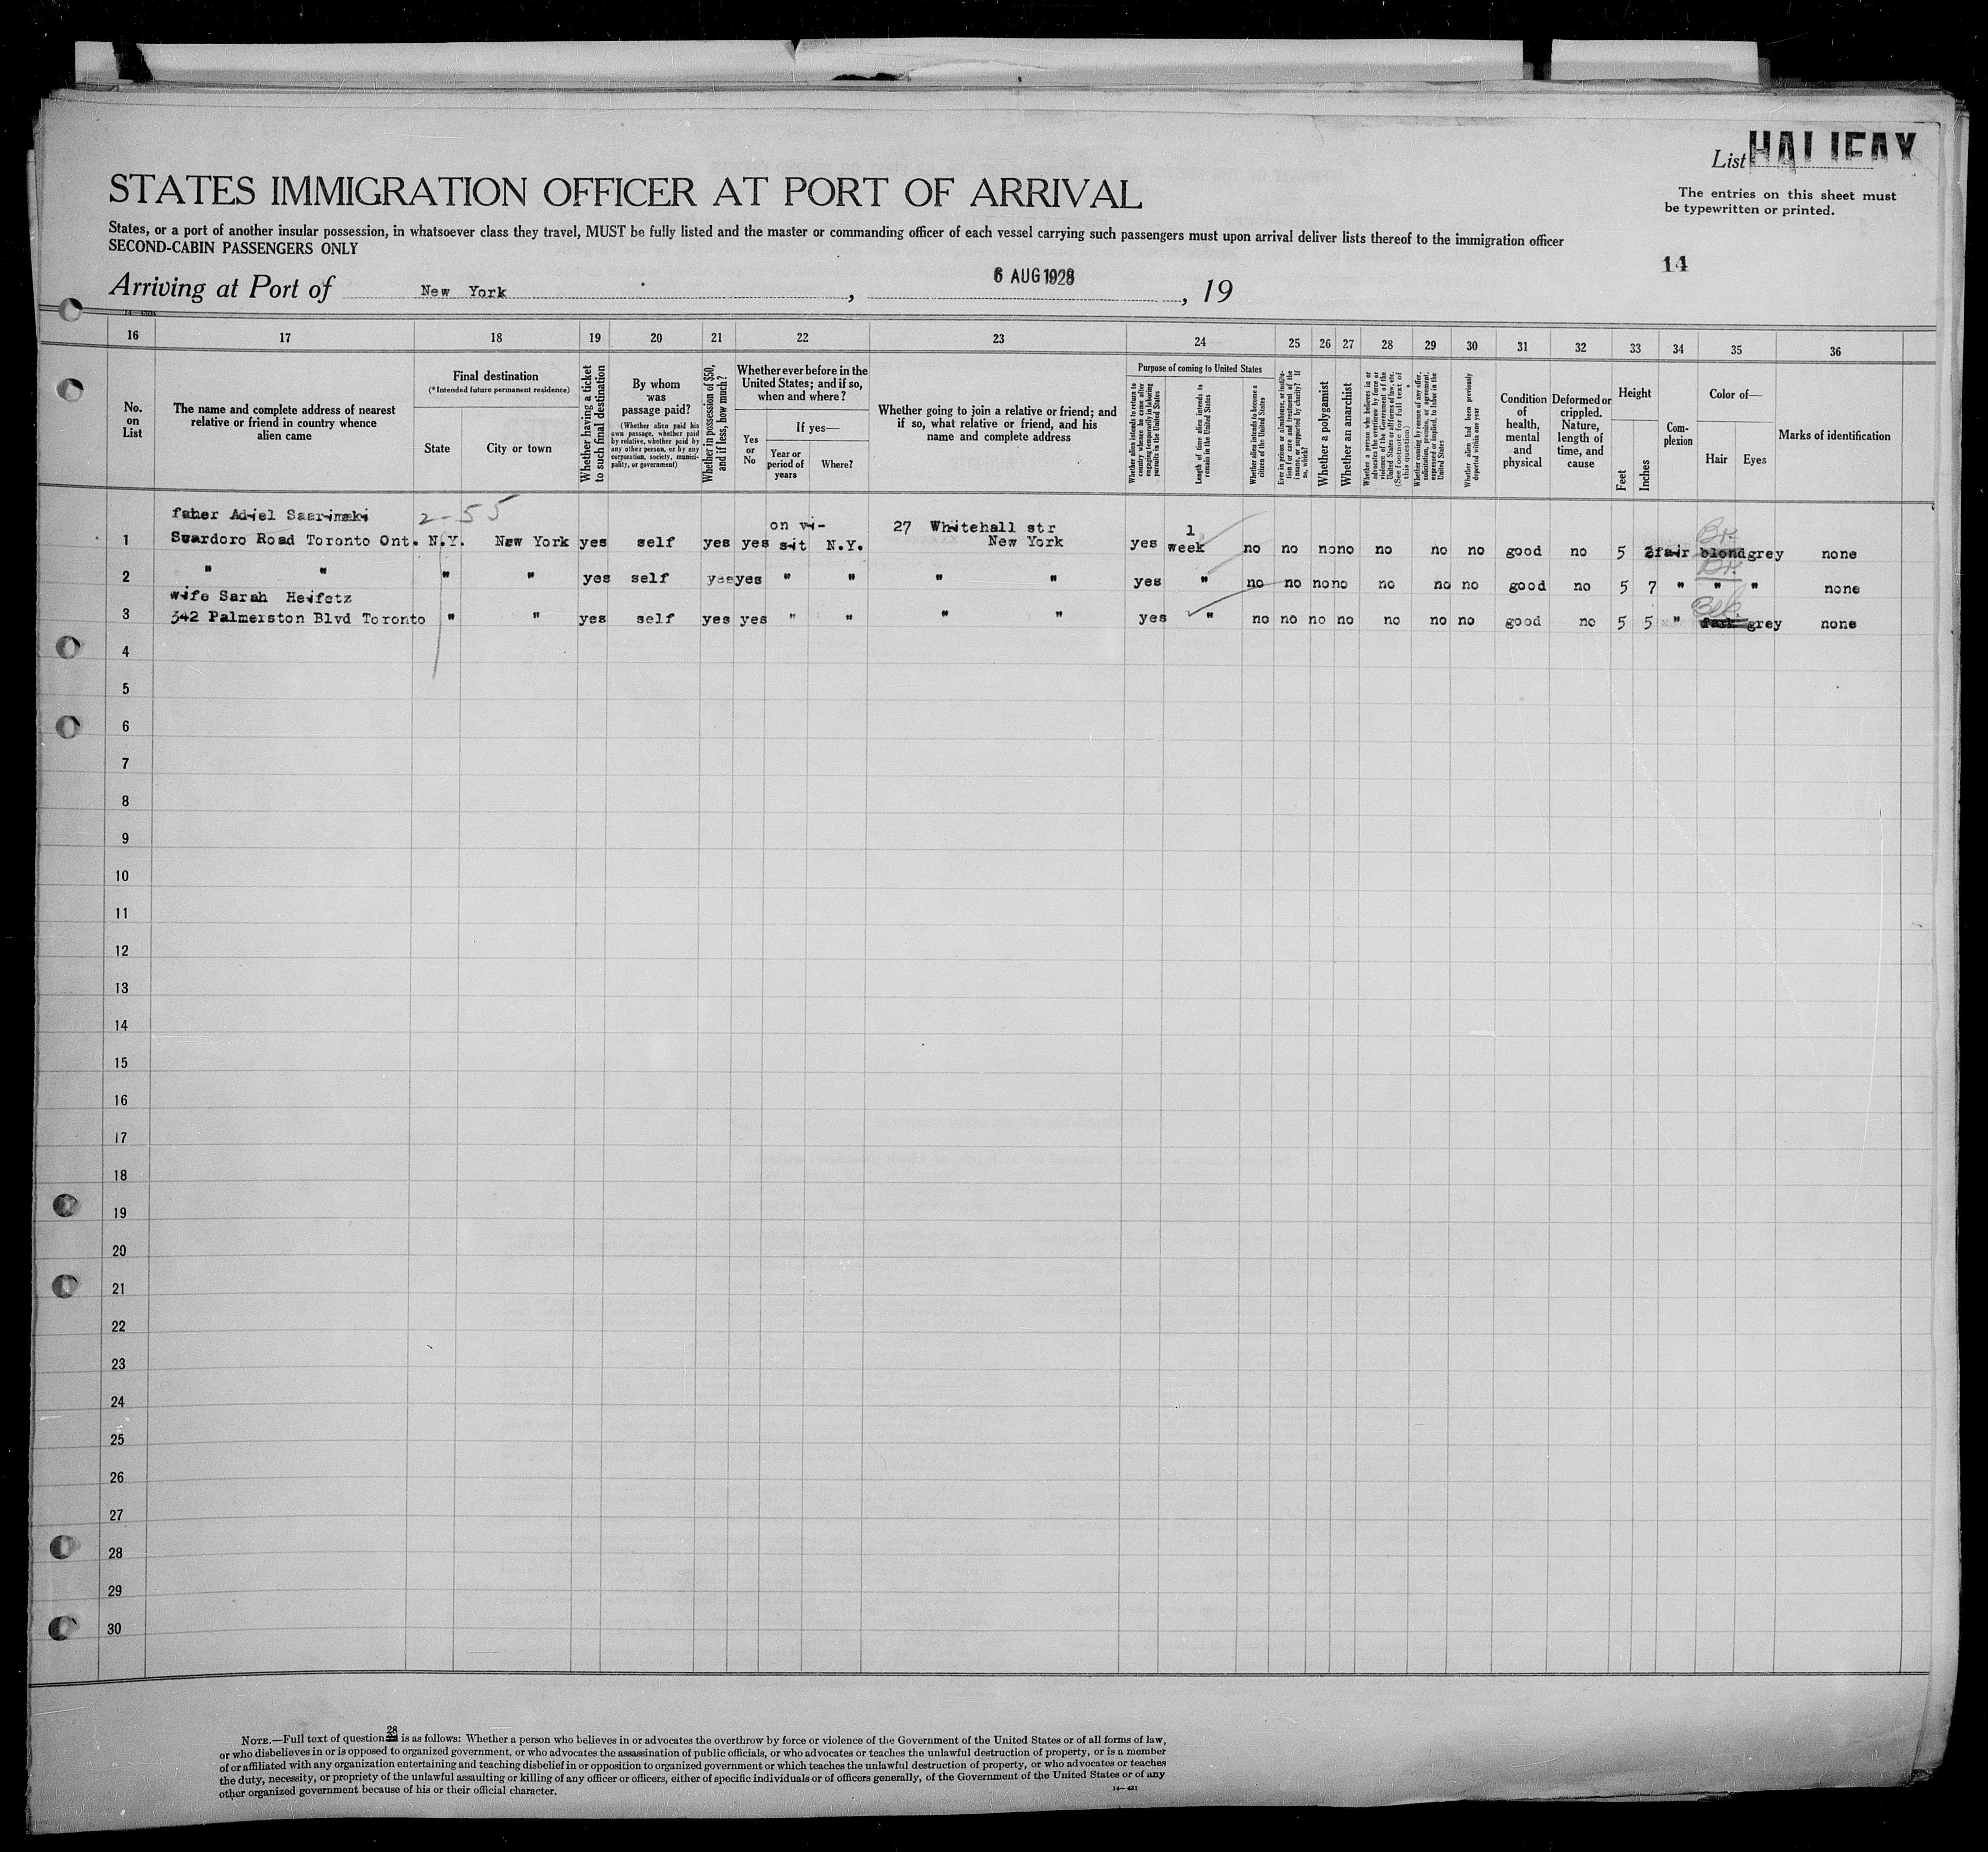 List HALIFAX
STATES IMMIGRATION OFFICER AT PORT OF ARRIVAL
The entries on this sheet must
be typewritten or printed.
States, or a port of another insular possession, in whatsoever class they travel, MUST be fully listed and the master or commanding officer of each vessel carrying such passengers must upon arrival deliver lists thereof to the immigration officer
SECOND-CABIN PASSENGERS ONLY
14
Arriving at Port of New York, 6 AUG 1928, 19
16 17 18 19 20 21 22 23 24 25 26 27 28 29 30 31 32 33 34 35 36
No. on List
The name and complete address of nearest relative or friend in country whence alien came
Final destination
(*Intended future permanent residence)
State
City or town
Whether having a ticket to such final destination
By whom was passage paid?
(Whether alien paid his own passage, whether paid by relative, whether paid by any other person, or by any corporation, society, municipality, or government)
Whether in possession of $50, and if less, how much?
Whether ever before in the United States; and if so, when and where?
Yes or No
If yes—
Year or period of years
Where?
Whether going to join a relative or friend; and if so, what relative or friend, and his name and complete address
Purpose of coming to United States
Whether alien intends to return to country whence he came after engaging temporarily in laboring pursuits in the United States
Length of time alien intends to remain in the United States
Whether alien intends to become a citizen of the United States
Ever in prison or almshouse, or institution for care and treatment of the insane, or supported by charity? If so, which?
Whether a polygamist
Whether an anarchist
Whether a person who believes in or advocates the overthrow by force or violence of the Government of the United States or all forms of law, etc. (See footnote for full text of this question)
Whether coming by reason of any offer, solicitation, promise, or agreement, expressed or implied, to labor in the United States
Whether alien had been previously deported within one year
Condition of health, mental and physical
Deformed or crippled. Nature, length of time, and cause
Height
Feet
Inches
Complexion
Color of—
Hair
Eyes
Marks of identification
faher Adiel Saarimaki 2-55 on vi- 27 Whitehall str 1 Br.
1 Road Toronto Ont. N.Y. New York yes self yes yes sit N.Y. New York yes week no no no no no no no good no 5 fair blond grey none
2 " " " " yes self yes yes " " " " yes " no no no no no no no good no 5 7 " " " none
wife Sarah Heifetz
3 342 Palmerston Blvd Toronto " " yes self yes yes " " " " yes " no no no no no no no good no 5 5 " grey none
4
5
6
7
8
9
10
11
12
13
14
15
16
17
18
19
20
21
22
23
24
25
26
27
28
29
30
NOTE.—Full text of question 28 is as follows: Whether a person who believes in or advocates the overthrow by force or violence of the Government of the United States or of all forms of law,
or who disbelieves in or is opposed to organized government, or who advocates the assassination of public officials, or who advocates or teaches the unlawful destruction of property, or is a member
of or affiliated with any organization entertaining and teaching disbelief in or opposition to organized government or which teaches the unlawful destruction of property, or who advocates or teaches
the duty, necessity, or propriety of the unlawful assaulting or killing of any officer or officers, either of specific individuals or of officers generally, of the Government of the United States or of any
other organized government because of his or their official character.
14—431